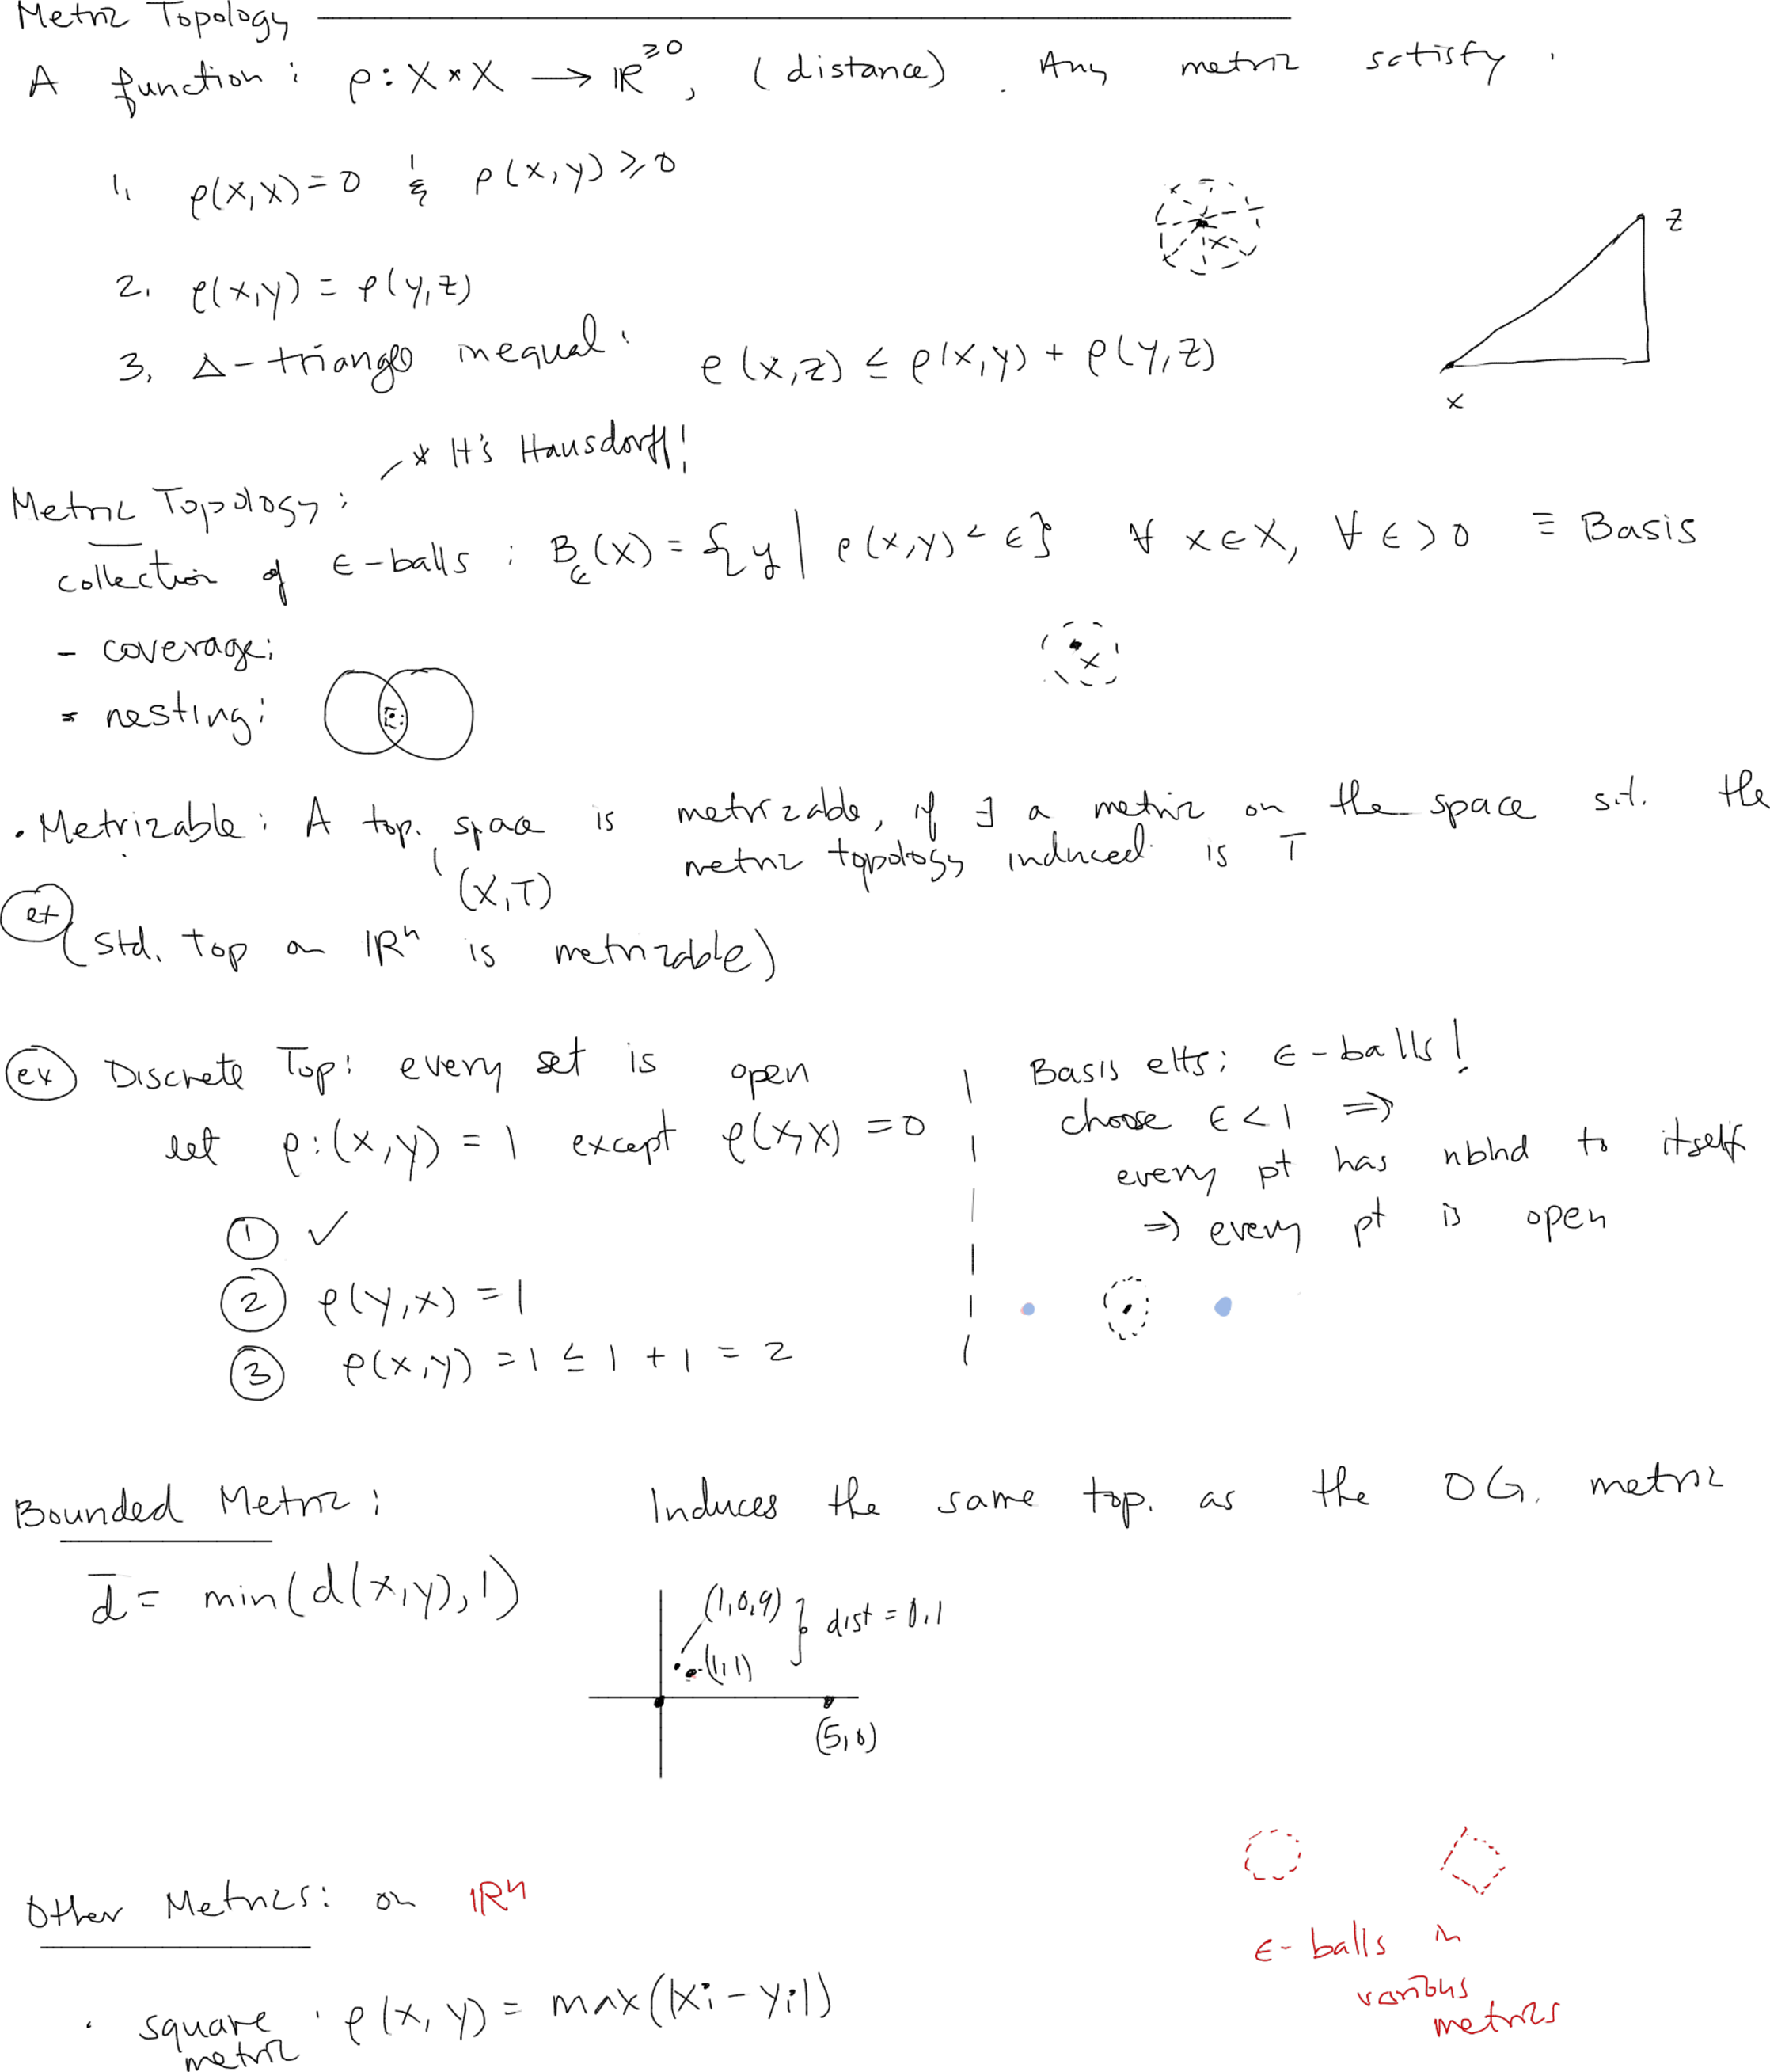 Metric Topology
A function: ρ: X × X → ℝ^≥0, (distance). Any metric satisfy:
1. ρ(x,x) = 0 & ρ(x,y) ≥ 0
x
z
2. ρ(x,y) = ρ(y,z)
3. Δ-triangle inequal: ρ(x,z) ≤ ρ(x,y) + ρ(y,z)
x
* It's Hausdorff!
Metric Topology:
collection of ε-balls: B_ε(x) = {y | ρ(x,y) < ε} ∀ x ∈ X, ∀ ε > 0 ≡ Basis
- coverage:
x
- nesting:
• Metrizable: A top. space is metrizable, if ∃ a metric on the space s.t. the
(X,T) metric topology induced is T
ex
(Std. top on ℝⁿ is metrizable)
ex Discrete Top: every set is open
let ρ:(x,y) = 1 except ρ(x,x) = 0
① ✓
② ρ(y,x) = 1
③ ρ(x,y) = 1 ≤ 1 + 1 = 2
Basis elts: ε-balls!
choose ε < 1 ⇒
every pt has nbhd to itself
⇒ every pt is open
Bounded Metric: Induces the same top. as the OG. metric
d̄ = min(d(x,y),1)
(1,0.9)
(1,1)
} dist = 0.1
(5,0)
Other Metrics: on ℝⁿ
ε-balls in
various
metrics
• square metric: ρ(x,y) = max(|xi - yi|)